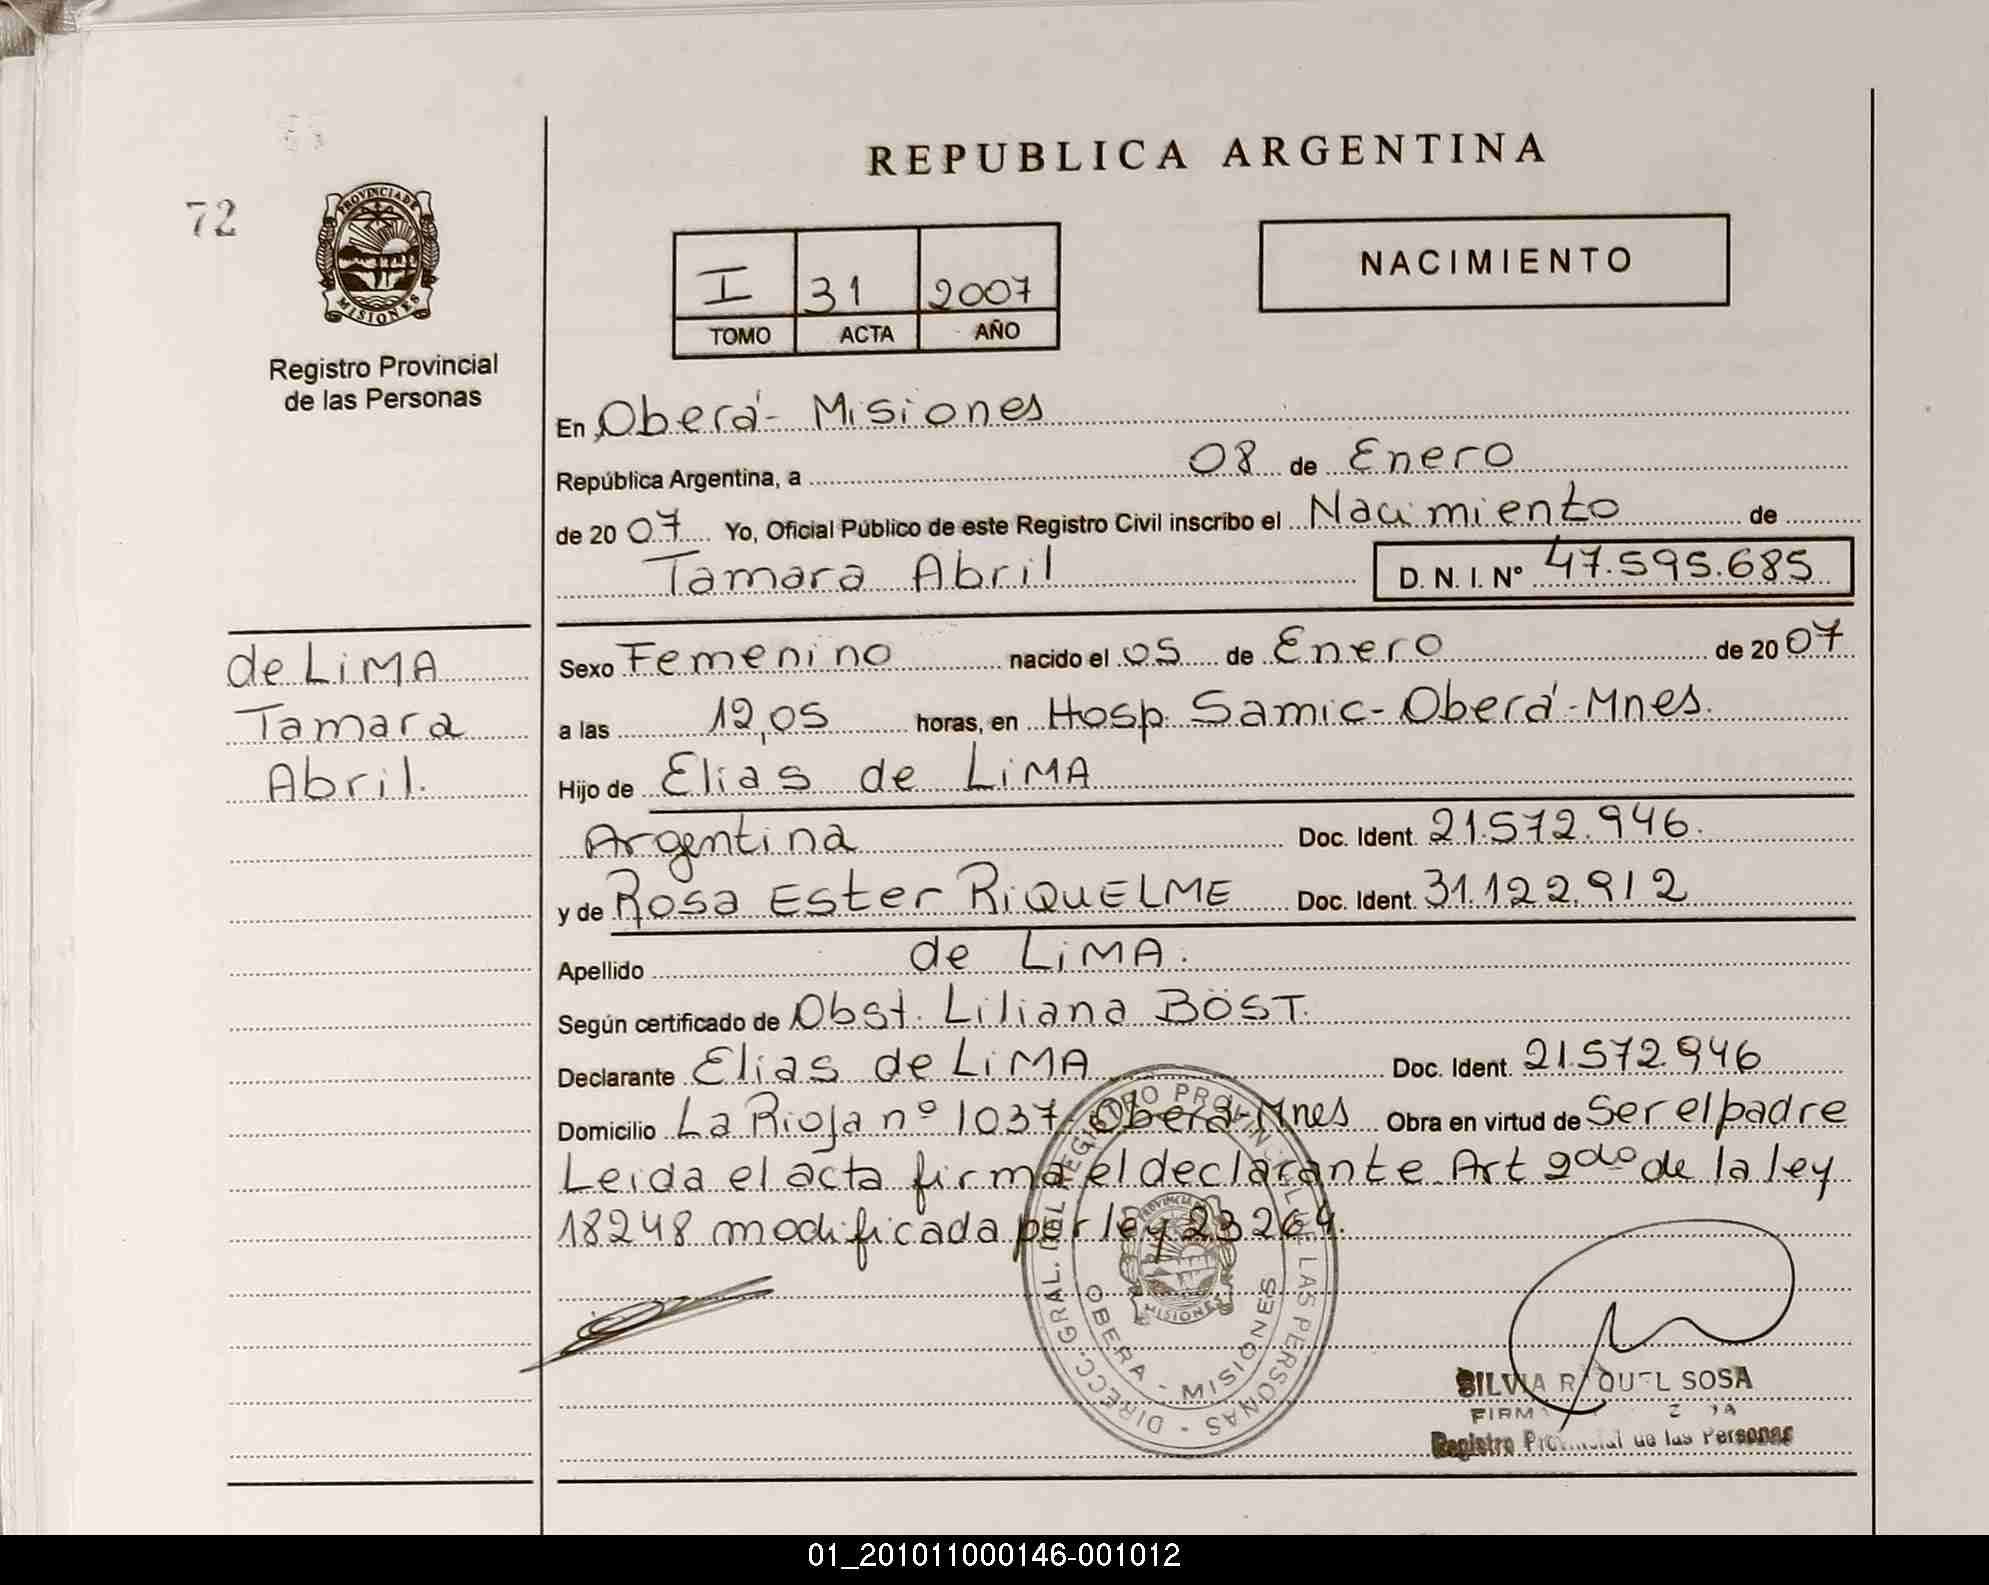 REPUBLICA ARGENTINA
72
PROVINCIA DE MISIONES
Registro Provincial
de las Personas
I 31 2007
TOMO ACTA AÑO
NACIMIENTO
En Oberá - Misiones
República Argentina, a 08 de Enero
de 2007 Yo, Oficial Público de este Registro Civil inscribo el Nacimiento de
Tamara Abril D. N. I. Nº 47.595.685
de LiMA
Tamara
Abril.
Sexo Femenino nacido el 05 de Enero de 2007
a las 12,05 horas, en Hosp. Samic - Oberá - Mnes.
Hijo de Elias de LiMA
Argentina Doc. Ident. 21.572.946.
y de Rosa Ester RiQUELME Doc. Ident. 31.122.912
Apellido de LiMA.
Según certificado de Obst. Liliana BÖST.
Declarante Elias de LiMA Doc. Ident. 21.572.946
Domicilio La Rioja nº 1037 - Oberá - Mnes Obra en virtud de Ser el padre
Leida el acta firma el declarante Art 2do de la ley
18248 modificada por ley 23264.
DIRECC. GRAL. DEL REGISTRO PROVINCIAL DE LAS PERSONAS -
PROVINCIA DE MISIONES
OBERA - MISIONES
SILVIA RAQUEL SOSA
FIRMA
Registro Provincial de las Personas
01_201011000146-001012